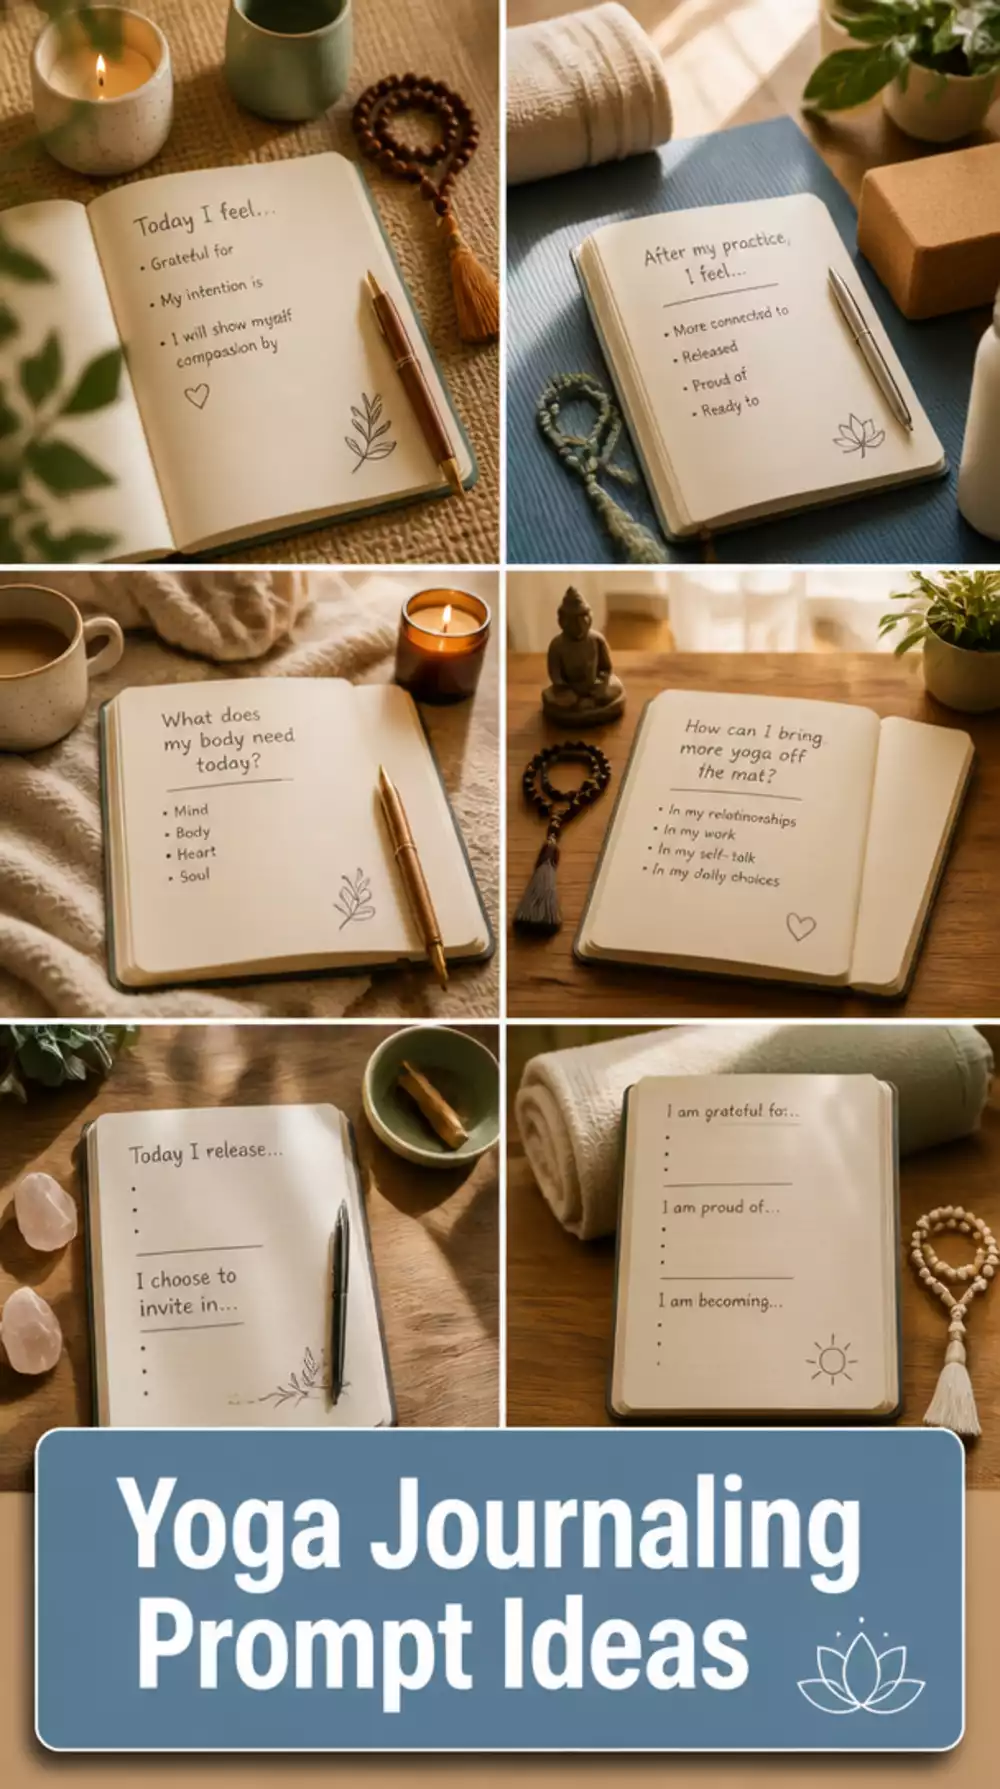 Today I feel...
• Grateful for
• My intention is
• I will show myself
compassion by
After my practice,
I feel...
• More connected to
• Released
• Proud of
• Ready to
What does
my body need
today?
• Mind
• Body
• Heart
• Soul
How can I bring
more yoga off
the mat?
• In my relatinorships
• In my work
• In my self-talk
• In my daily choices
Today I release...
I choose to
invite in...
I am grateful for...
I am proud of...
I am becoming...
Yoga Journaling
Prompt Ideas